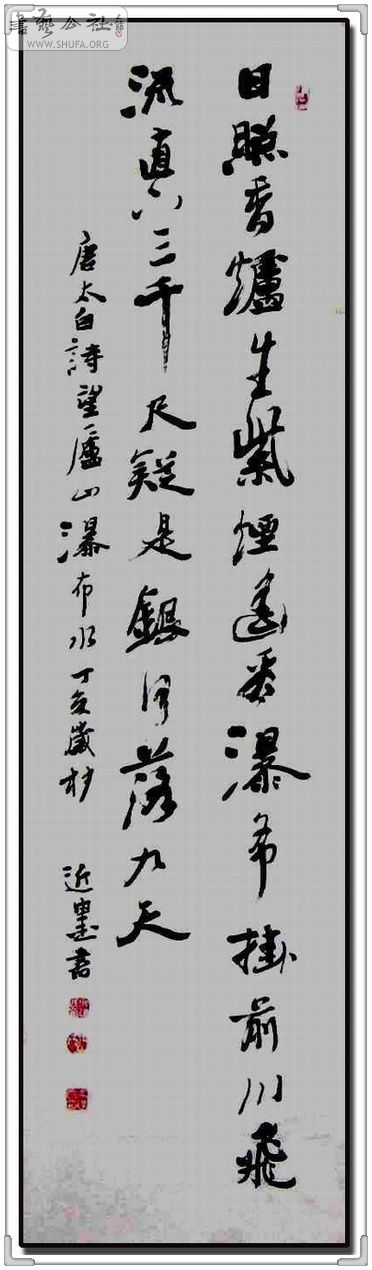 書藝公社
WWW.SHUFA.ORG
日照香爐生紫煙遙看瀑布掛前川飛
流直下三千尺疑是銀河落九天
唐太白詩望廬山瀑布水丁亥歲杪
近墨書